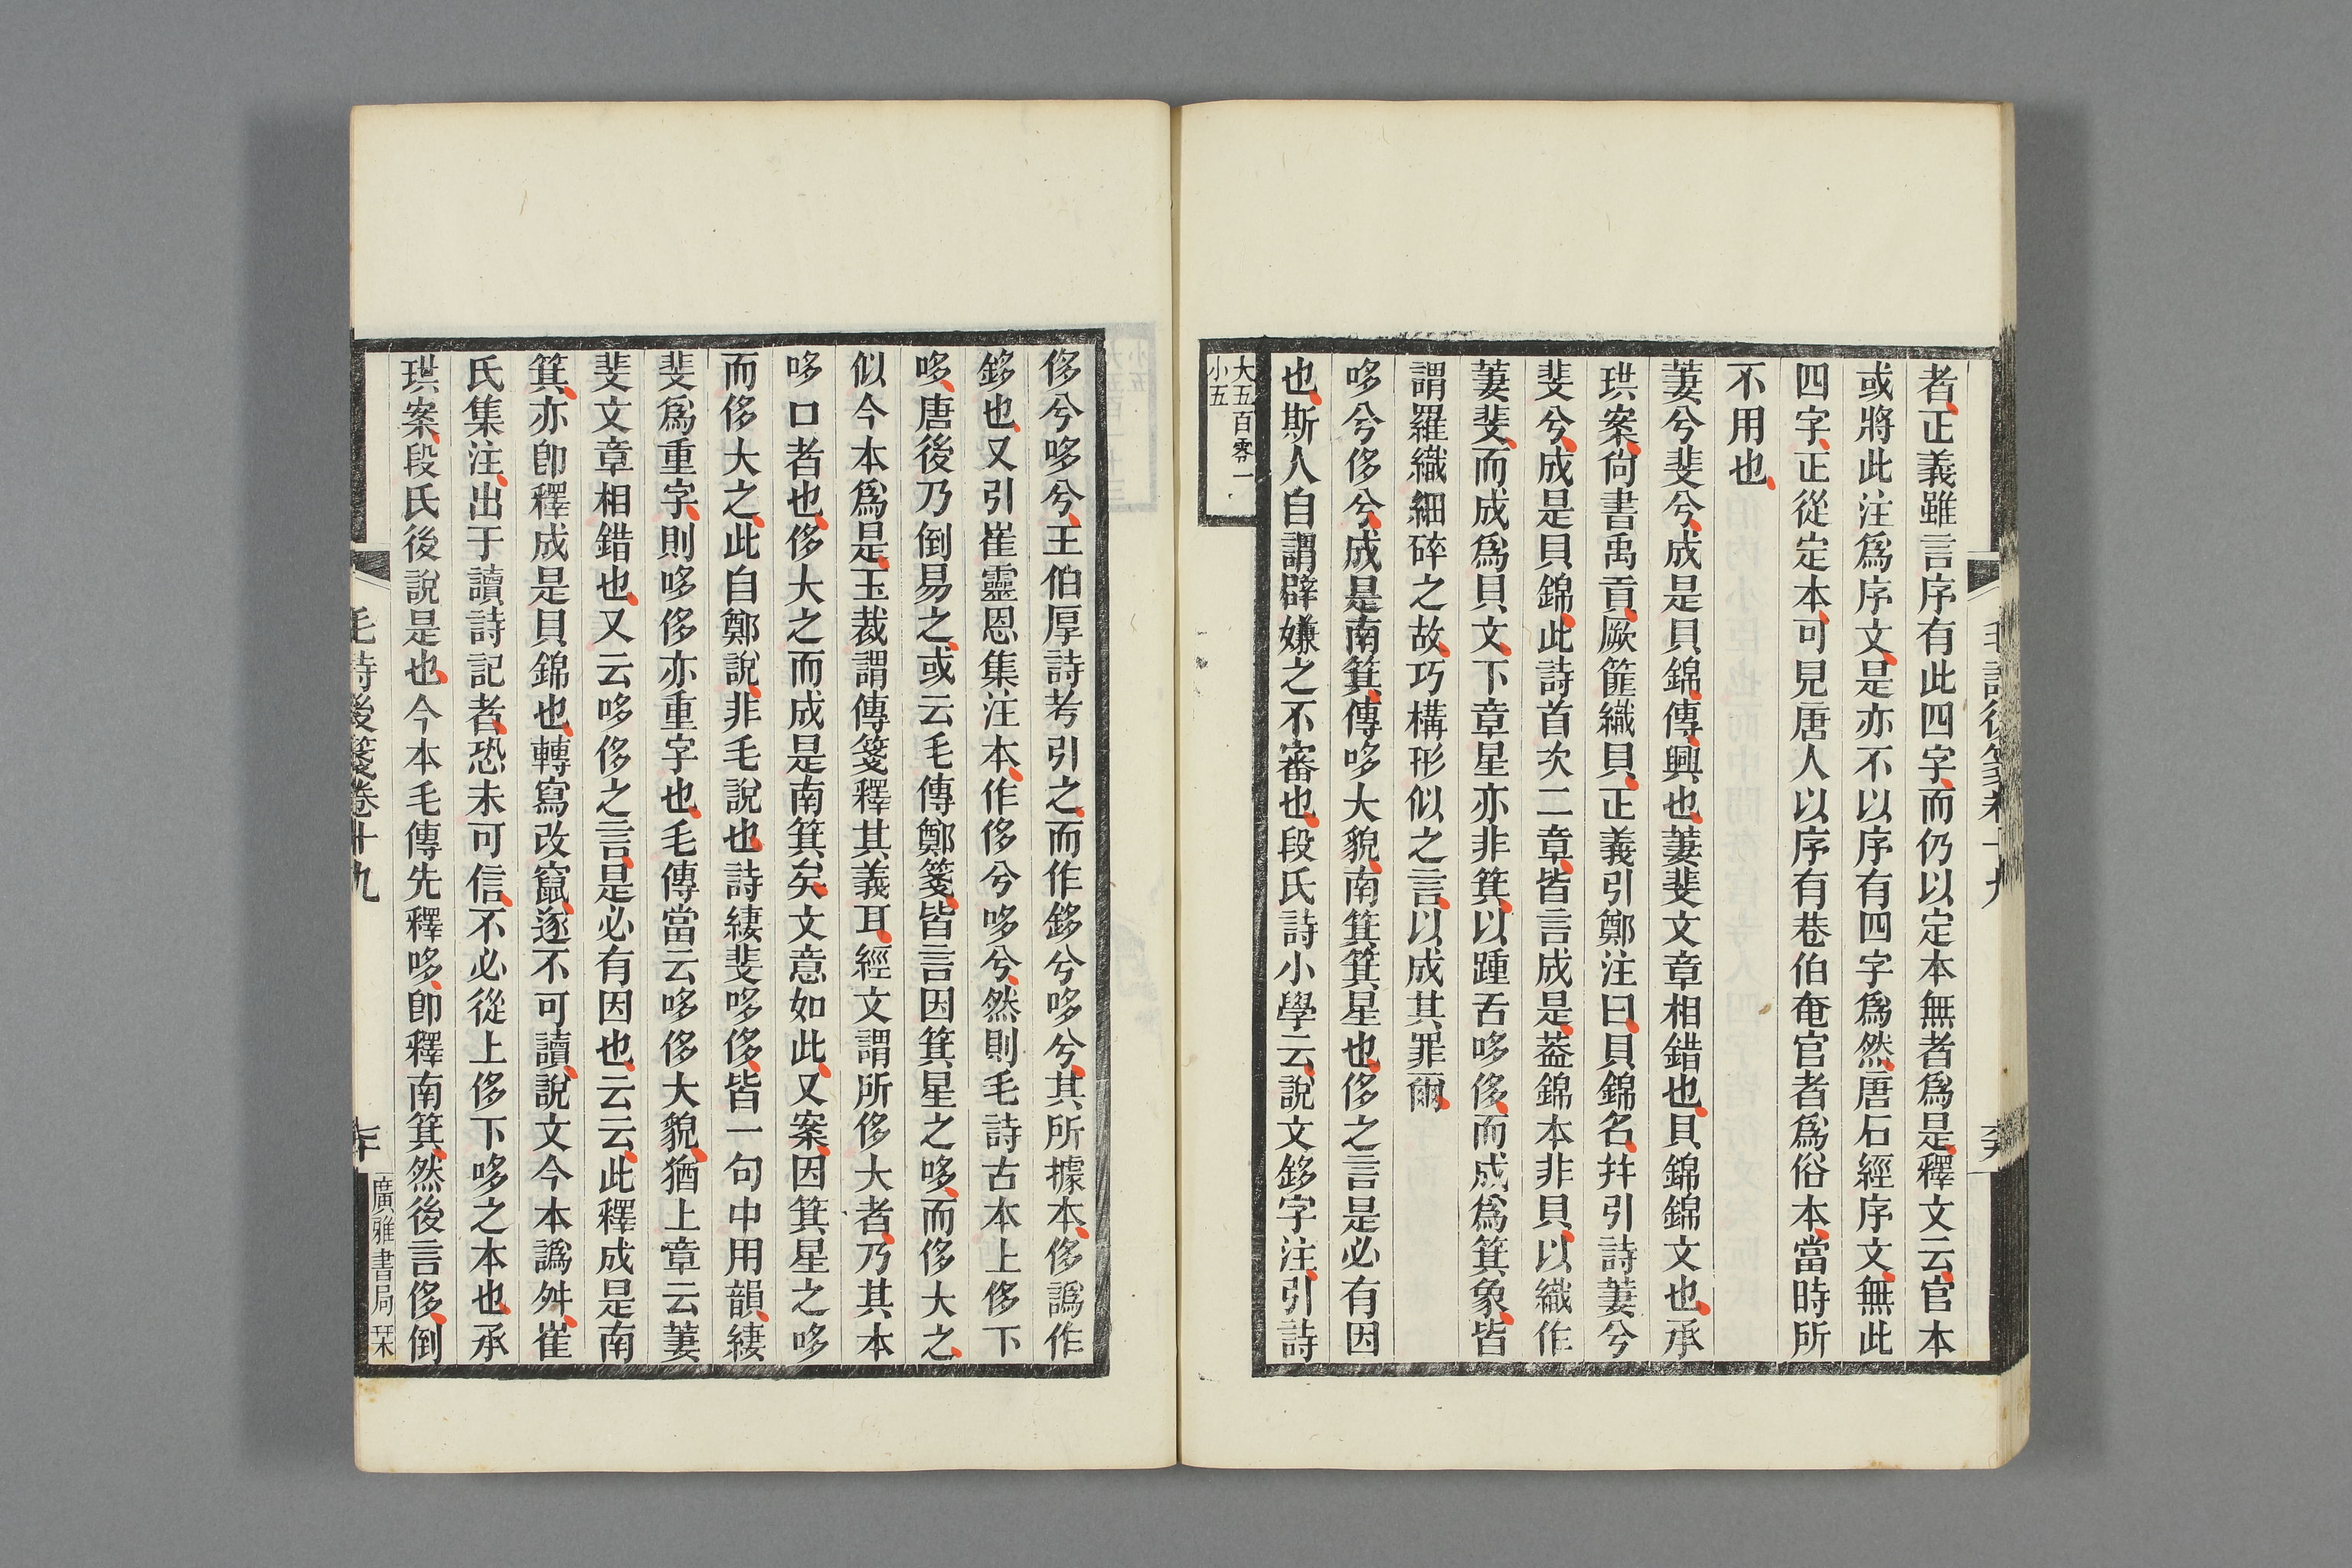 者正義雖言序有此四字而仍以定本無者爲是釋文云官本
或將此注爲序文是亦不以序有四字爲然唐石經序文無此
四字正從定本可見唐人以序有巷伯奄官者爲俗本當時所
不用也
萋兮斐兮成是貝錦傳興也萋斐文章相錯也貝錦錦文也承
珙案尙書禹貢厥篚織貝正義引鄭注曰貝錦名幷引詩萋兮
斐兮成是貝錦此詩首次二章皆言成是葢錦本非貝以織作
萋斐而成爲貝文下章星亦非箕以踵舌哆侈而成爲箕象皆
謂羅織細碎之故巧構形似之言以成其罪爾
哆兮侈兮成是南箕傳哆大貌南箕箕星也侈之言是必有因
也斯人自謂辟嫌之不審也段氏詩小學云說文鉹字注引詩
大五百零一
小五
侈兮哆兮王伯厚詩考引之而作鉹兮哆兮其所據本侈譌作
鉹也又引崔靈恩集注本作侈兮哆兮然則毛詩古本上侈下
哆唐後乃倒易之或云毛傳鄭箋皆言因箕星之哆而侈大之
似今本爲是玉裁謂傳箋釋其義耳經文謂所侈大者乃其本
哆口者也侈大之而成是南箕矣文意如此又案因箕星之哆
而侈大之此自鄭說非毛說也詩緀斐哆侈皆一句中用韻緀
斐爲重字則哆侈亦重字也毛傳當云哆侈大貌猶上章云萋
斐文章相錯也又云哆侈之言是必有因也云云此釋成是南
箕亦卽釋成是貝錦也轉寫改竄遂不可讀說文今本譌舛崔
氏集注出于讀詩記者恐未可信不必從上侈下哆之本也承
珙案段氏後說是也今本毛傳先釋哆卽釋南箕然後言侈倒
毛詩後箋卷十九
廣雅書局栞